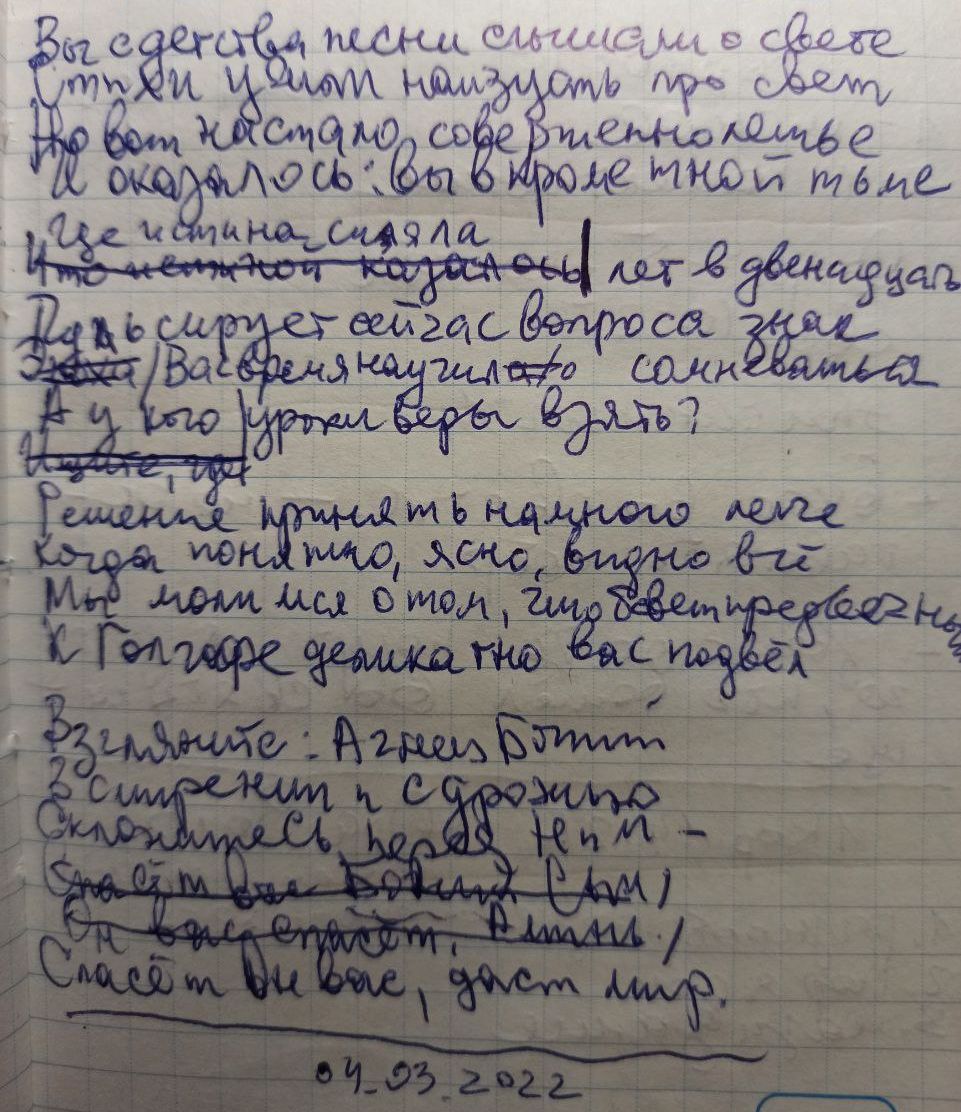 Вы с детства песни слышали о свете
Стихи учили наизусть про свет
Но вот настало совершеннолетье
И оказалось: вы в кромешной тьме
Где истина сияла
Что неткной казалось лет в двенадцать
Пульсирует сейчас вопроса знак
Вас время научило сомневаться
А у кого уроки веры взять?
Ищите, где
Решение принять намного легче
Когда понятно, ясно, видно всё
Мы молимся о том, чтоб свет предвечный
К Голгофе деликатно вас подвёл
Взгляните: Агнец Божий
В смирении и с дрожью
Склонитесь перед Ним –
Спасёт вас Божий Сын,
Он вас спасёт. Аминь.
Спасёт Он вас, даст мир.
04.03.2022